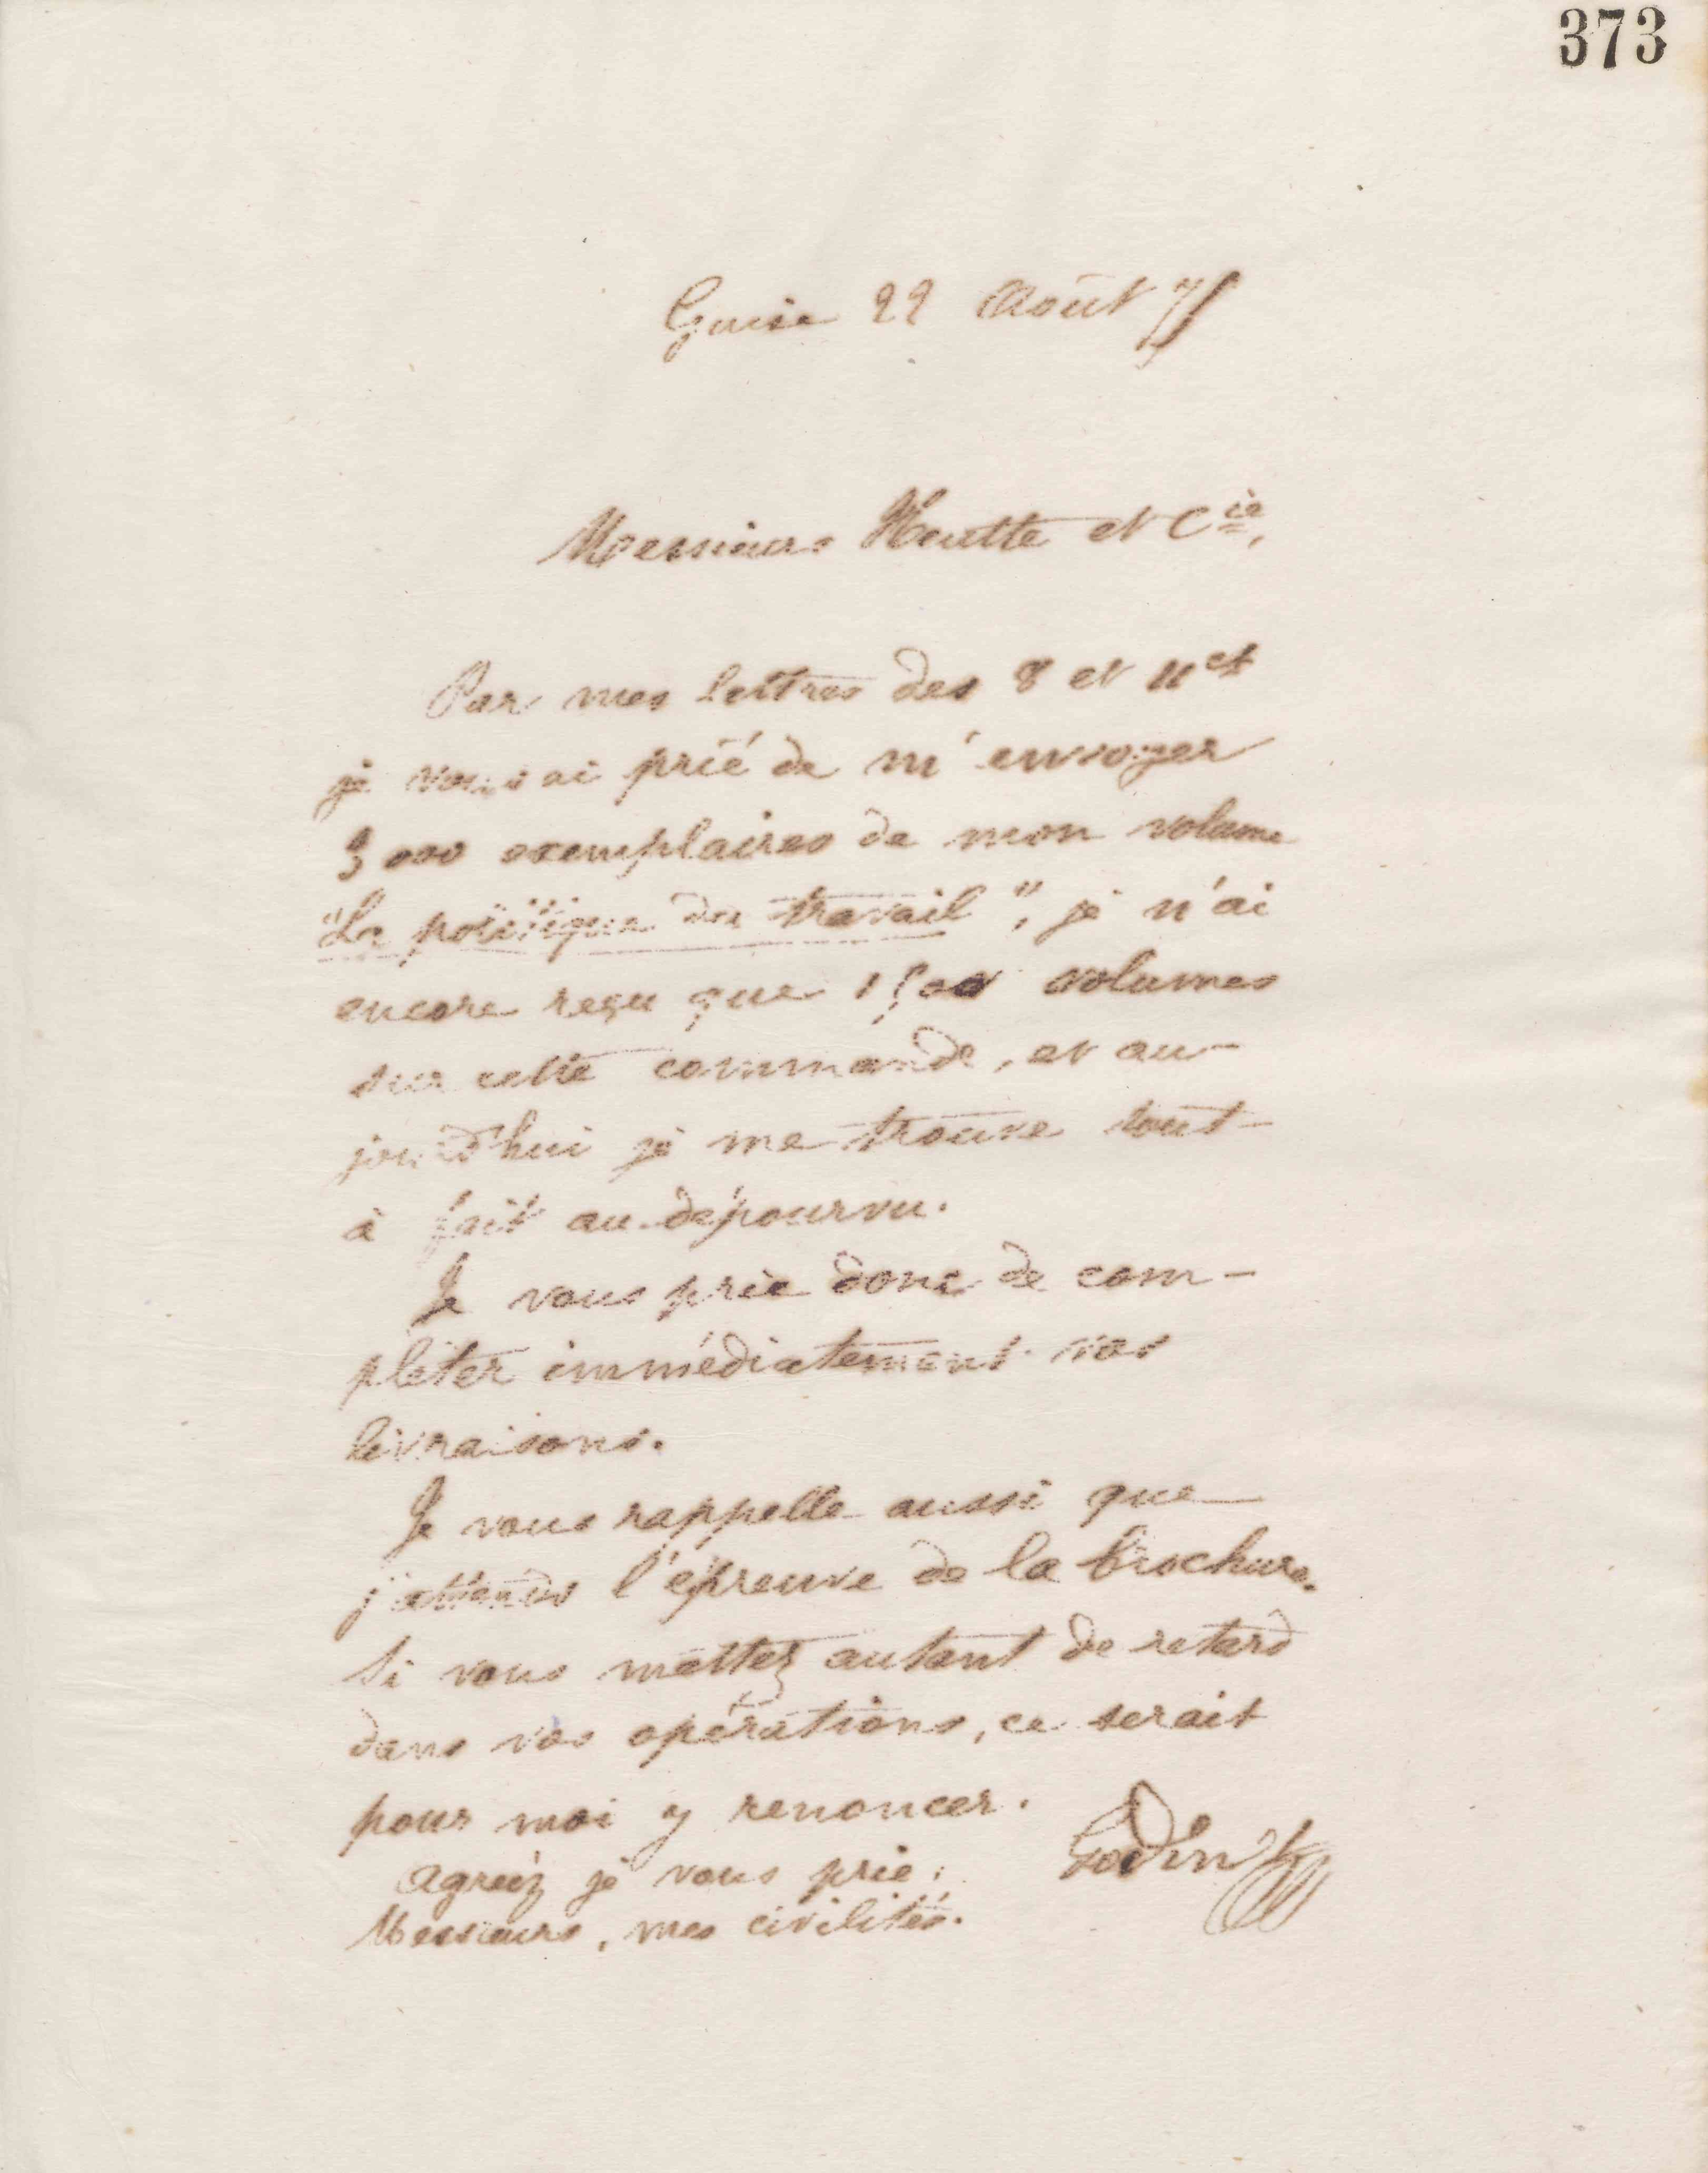 373
Guise 22 Août 75
Messieurs Houtte et Cie,
Par mes lettres des 8 et 11 ct
je vous ai prié de m'envoyer
3000 exemplaires de mon volume
"La politique du travail", je n'ai
encore reçu que 1500 volumes
sur cette commande, et au-
jourd'hui je me trouve tout-
à fait au dépourvu.
Je vous prie donc de com-
pléter immédiatement vos
livraisons.
Je vous rappelle aussi que
j'attends l'épreuve de la brochure.
Si vous mettez autant de retard
dans vos opérations, ce serait
pour moi y renoncer.
Agréez je vous prie,
Messieurs, mes civilités.
Godin